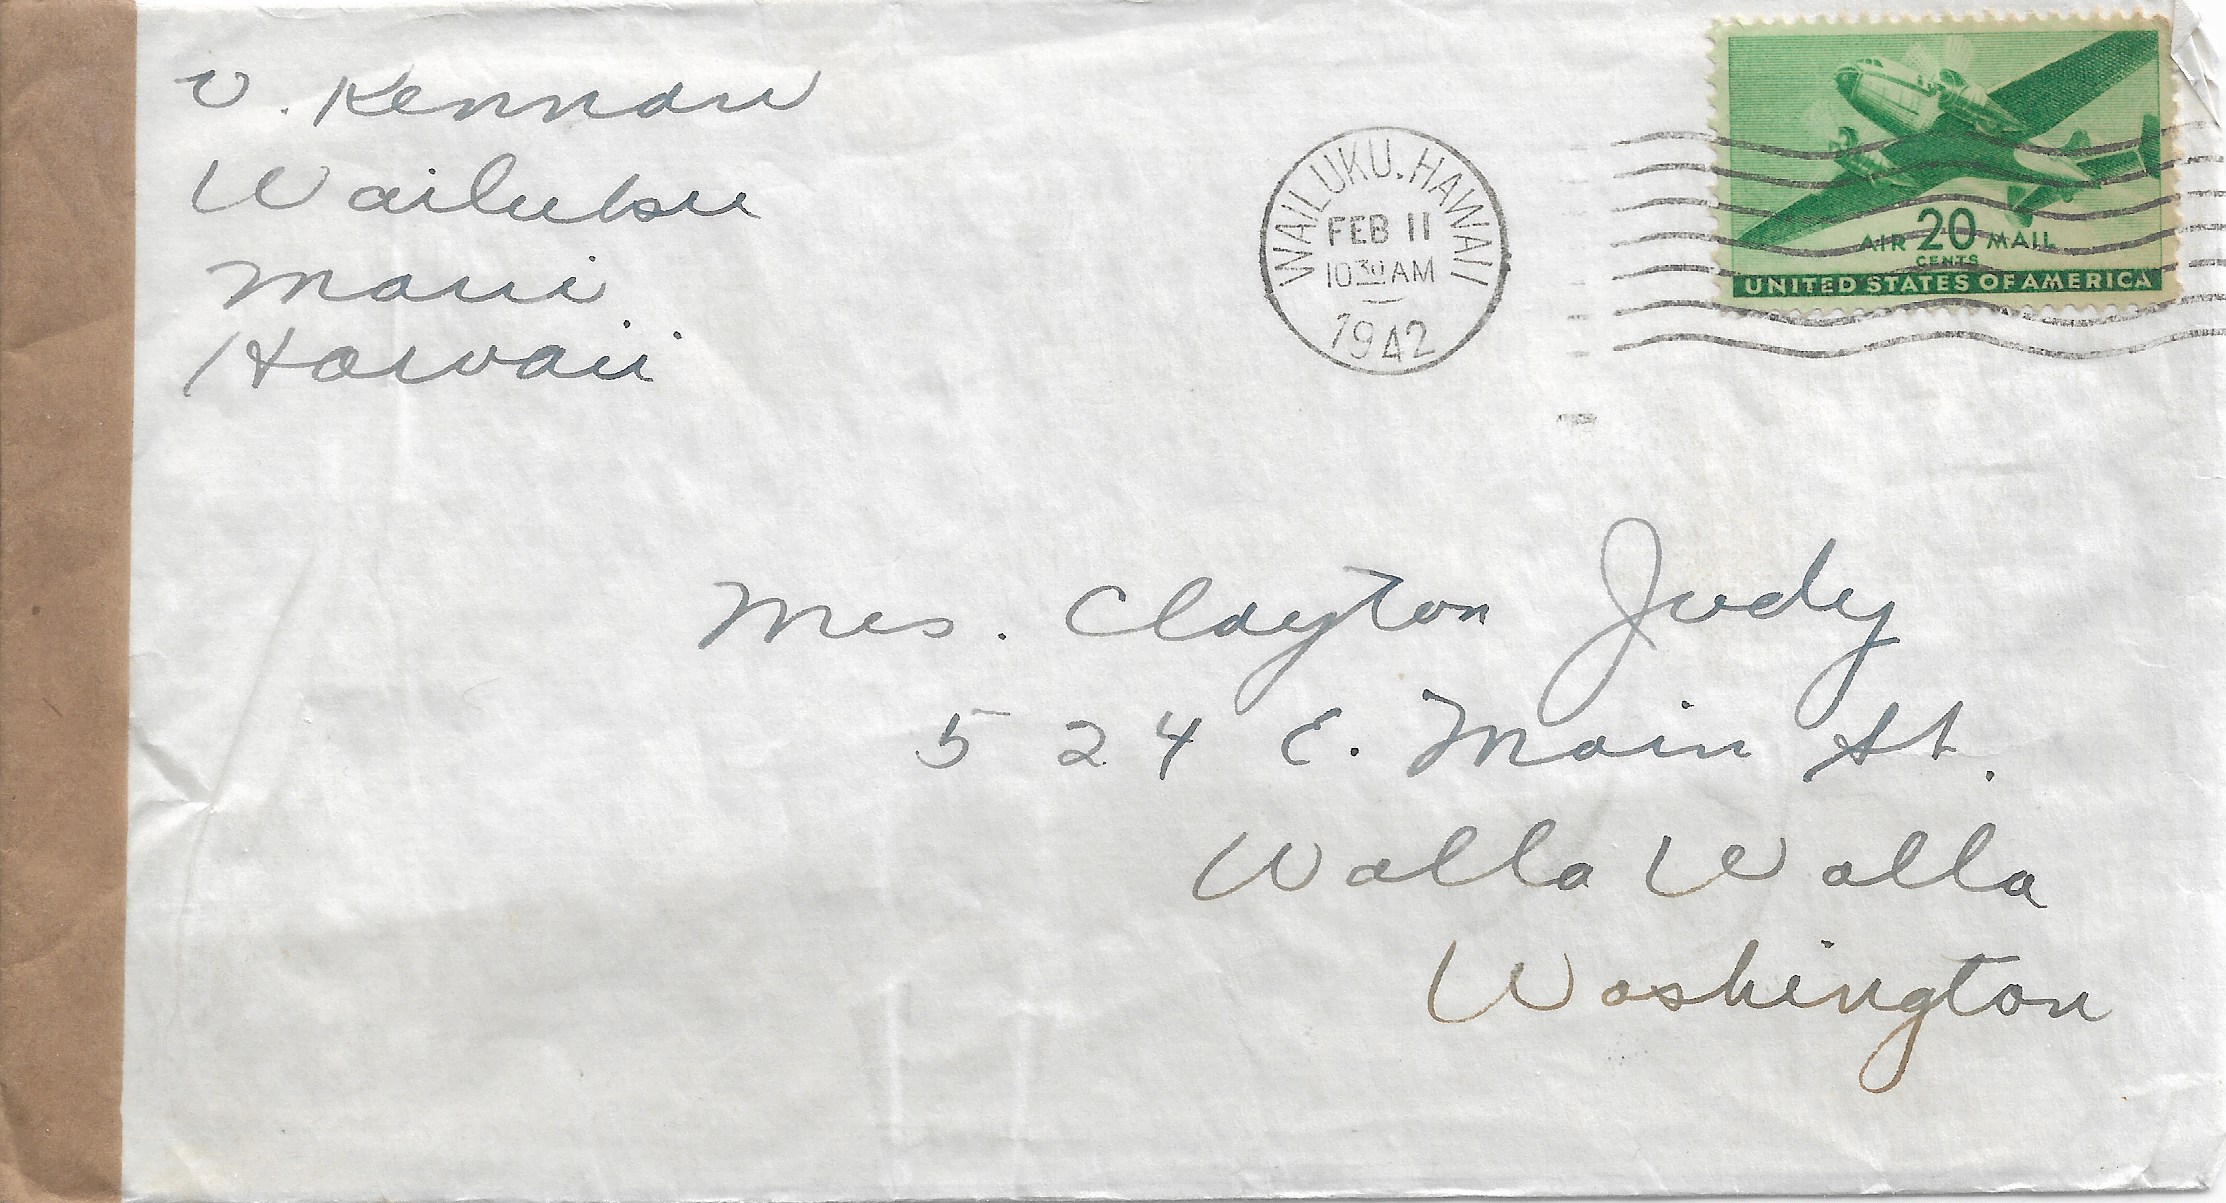 V. Kennan
Wailuku
Maui
Hawaii
WAILUKU, HAWAII
FEB 11
10 30 AM
1942
AIR 20 MAIL
CENTS
UNITED STATES OF AMERICA
Mrs. Clayton Judy
524 E. Main St.
Walla Walla
Washington